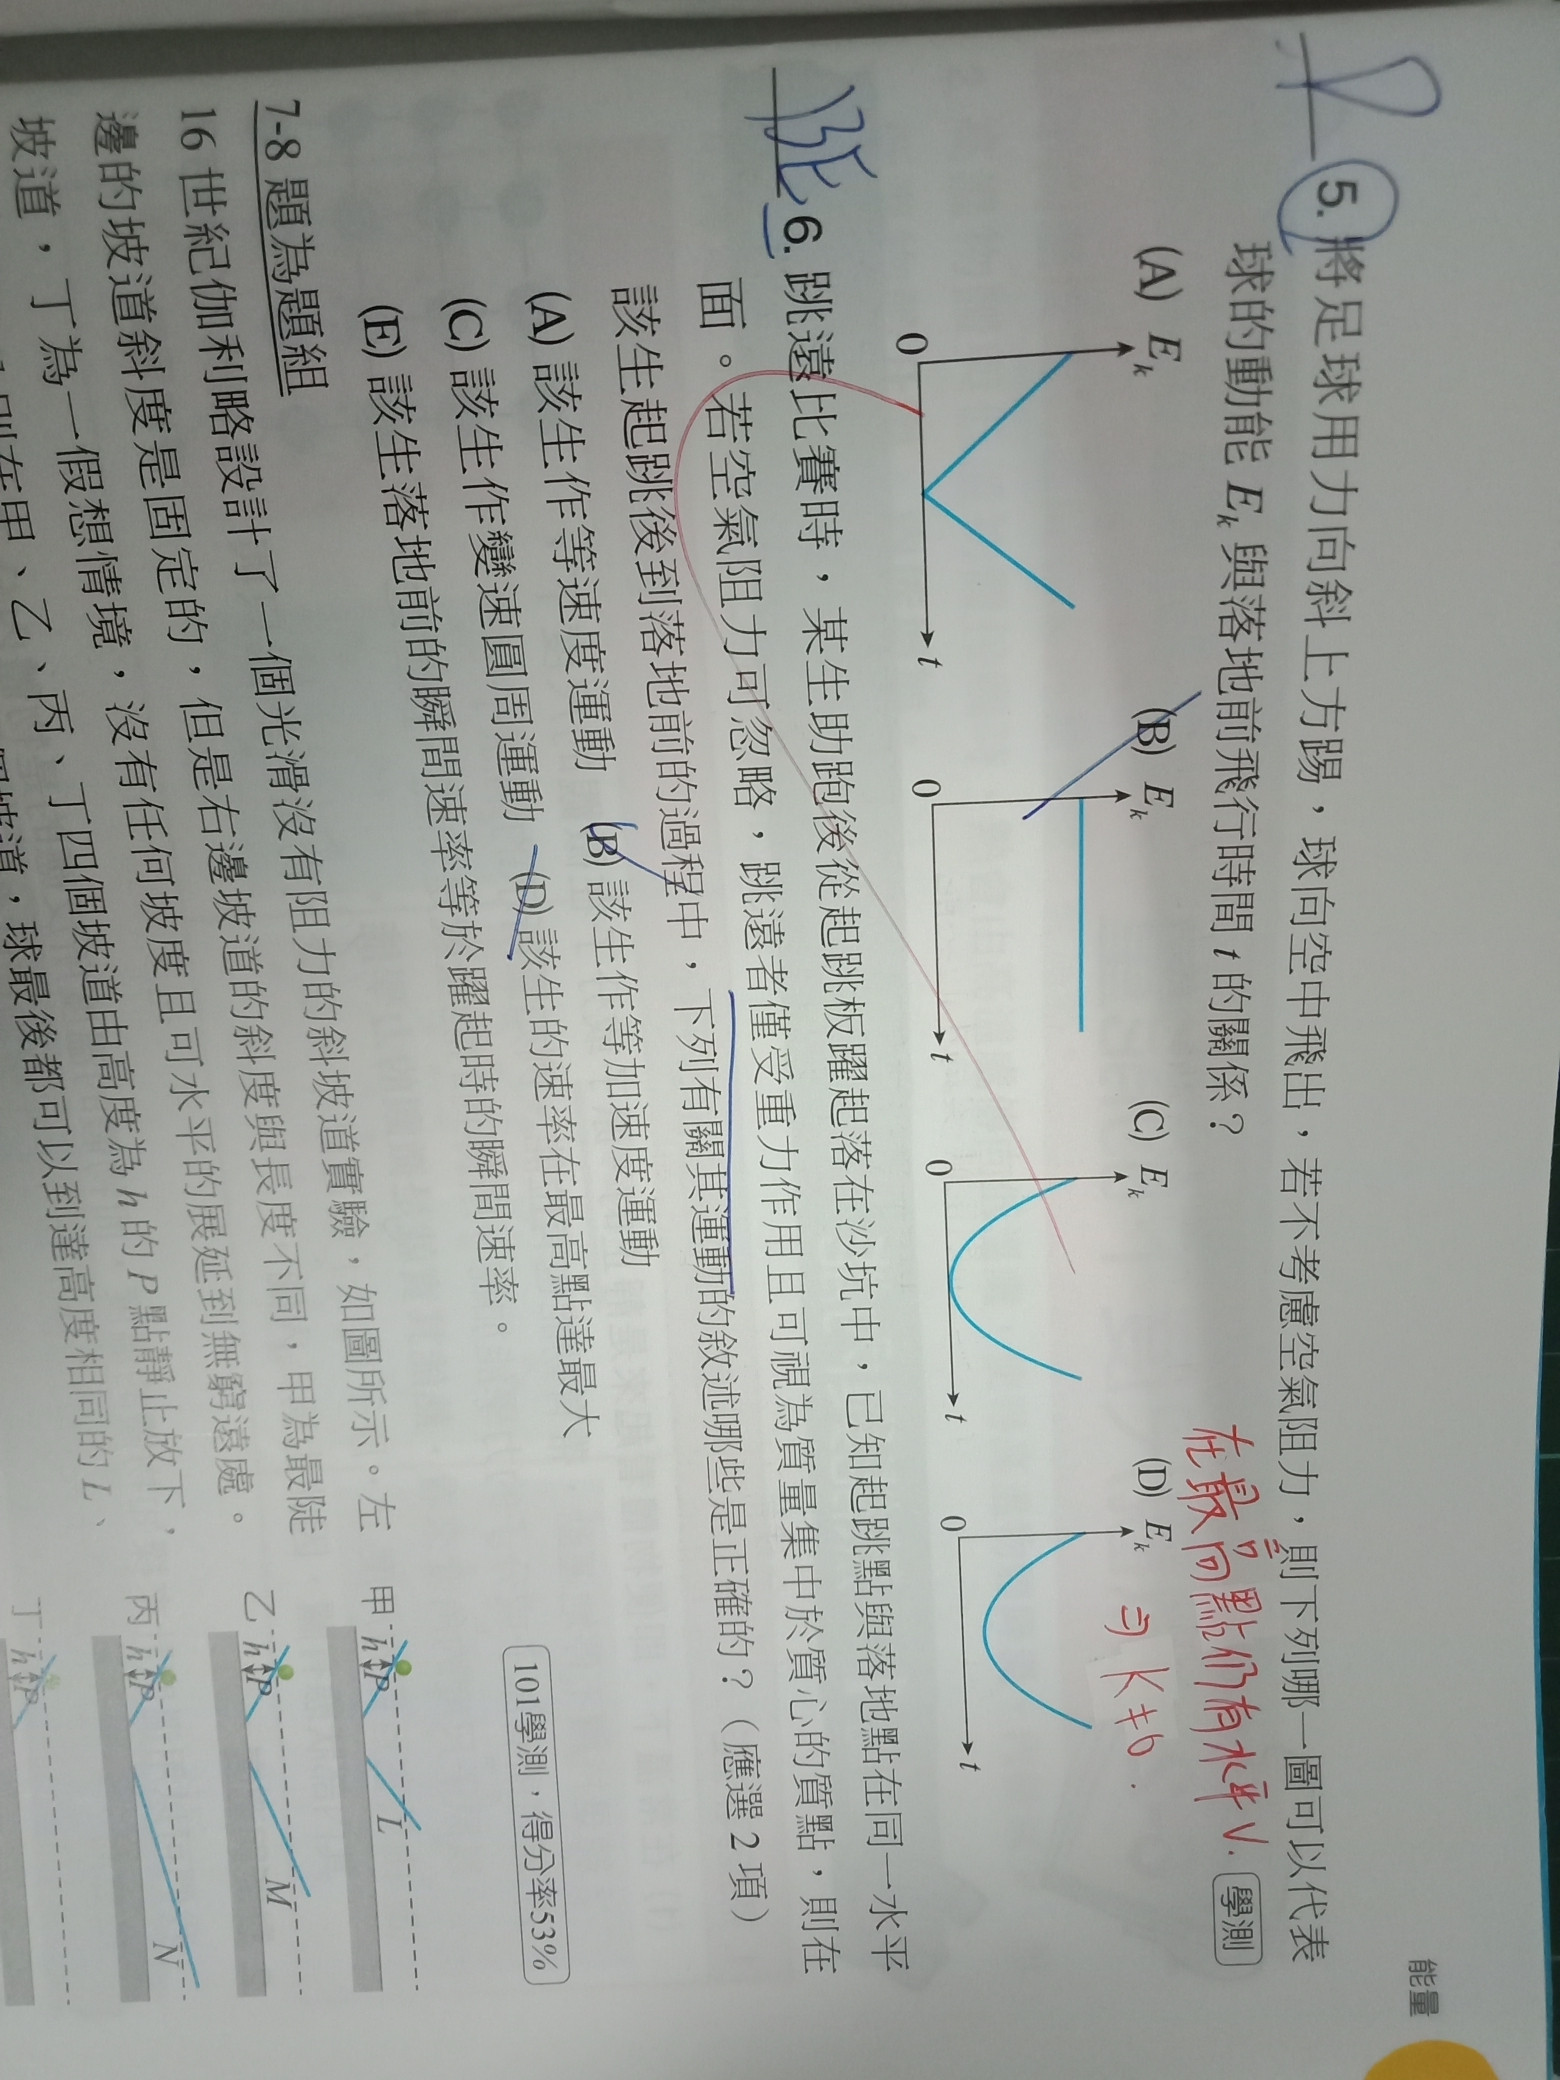 能量
5. 將足球用力向斜上方踢，球向空中飛出，若不考慮空氣阻力，則下列哪一圖可以代表
球的動能 Ek 與落地前飛行時間 t 的關係？ 學測
在最高點仍有水平V.
⇒ K≠0.
(A) Ek 0 t (B) Ek 0 t (C) Ek 0 t (D) Ek 0 t
6. 跳遠比賽時，某生助跑後從起跳板躍起落在沙坑中，已知起跳點與落地點在同一水平
面。若空氣阻力可忽略，跳遠者僅受重力作用且可視為質量集中於質心的質點，則在
該生起跳後到落地前的過程中，下列有關其運動的敘述哪些是正確的？（應選 2 項）
(A) 該生作等速度運動 (B) 該生作等加速度運動
(C) 該生作變速圓周運動 (D) 該生的速率在最高點達最大
(E) 該生落地前的瞬間速率等於躍起時的瞬間速率。 101學測，得分率53%
7-8 題為題組
16 世紀伽利略設計了一個光滑沒有阻力的斜坡道實驗，如圖所示。左
邊的坡道斜度是固定的，但是右邊坡道的斜度與長度不同，甲為最陡
坡道，丁為一假想情境，沒有任何坡度且可水平的展延到無窮遠處。
別在甲、乙、丙、丁四個坡道由高度為 h 的 P 點靜止放下，
坡道，球最後都可以到達高度相同的 L、
甲 h P L
乙 h P M
丙 h P N
丁 h P